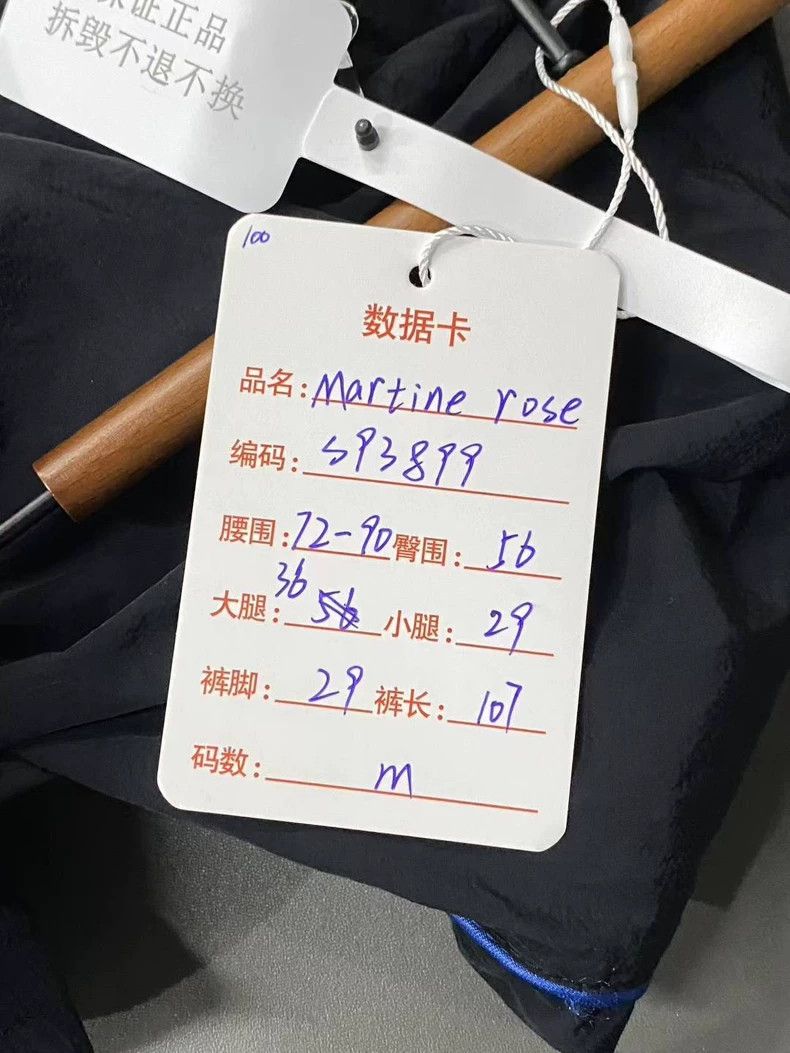 保证正品
拆毁不退不换
100
数据卡
品名: Martine rose
编码: S93899
腰围: 72-90 臀围: 56
大腿: 36 小腿: 29
裤脚: 29 裤长: 107
码数: m